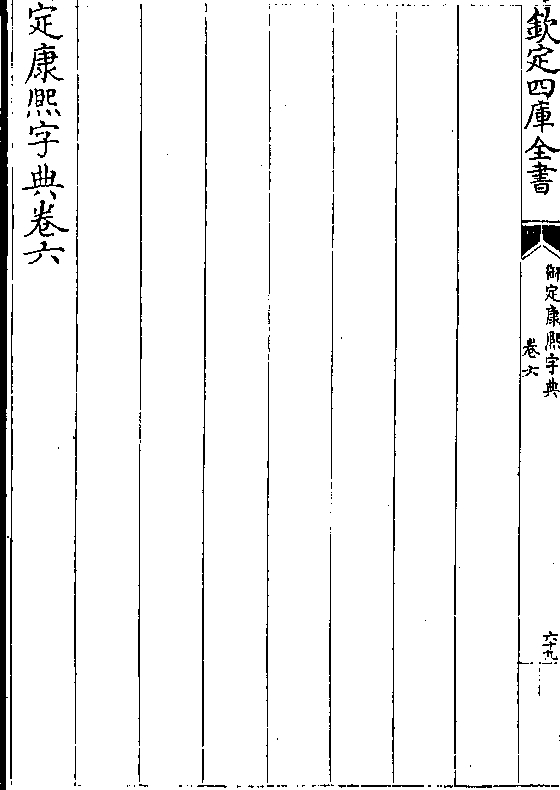 欽定四庫全書
御定康熙字典
卷六
六十九
定康熙字典卷六